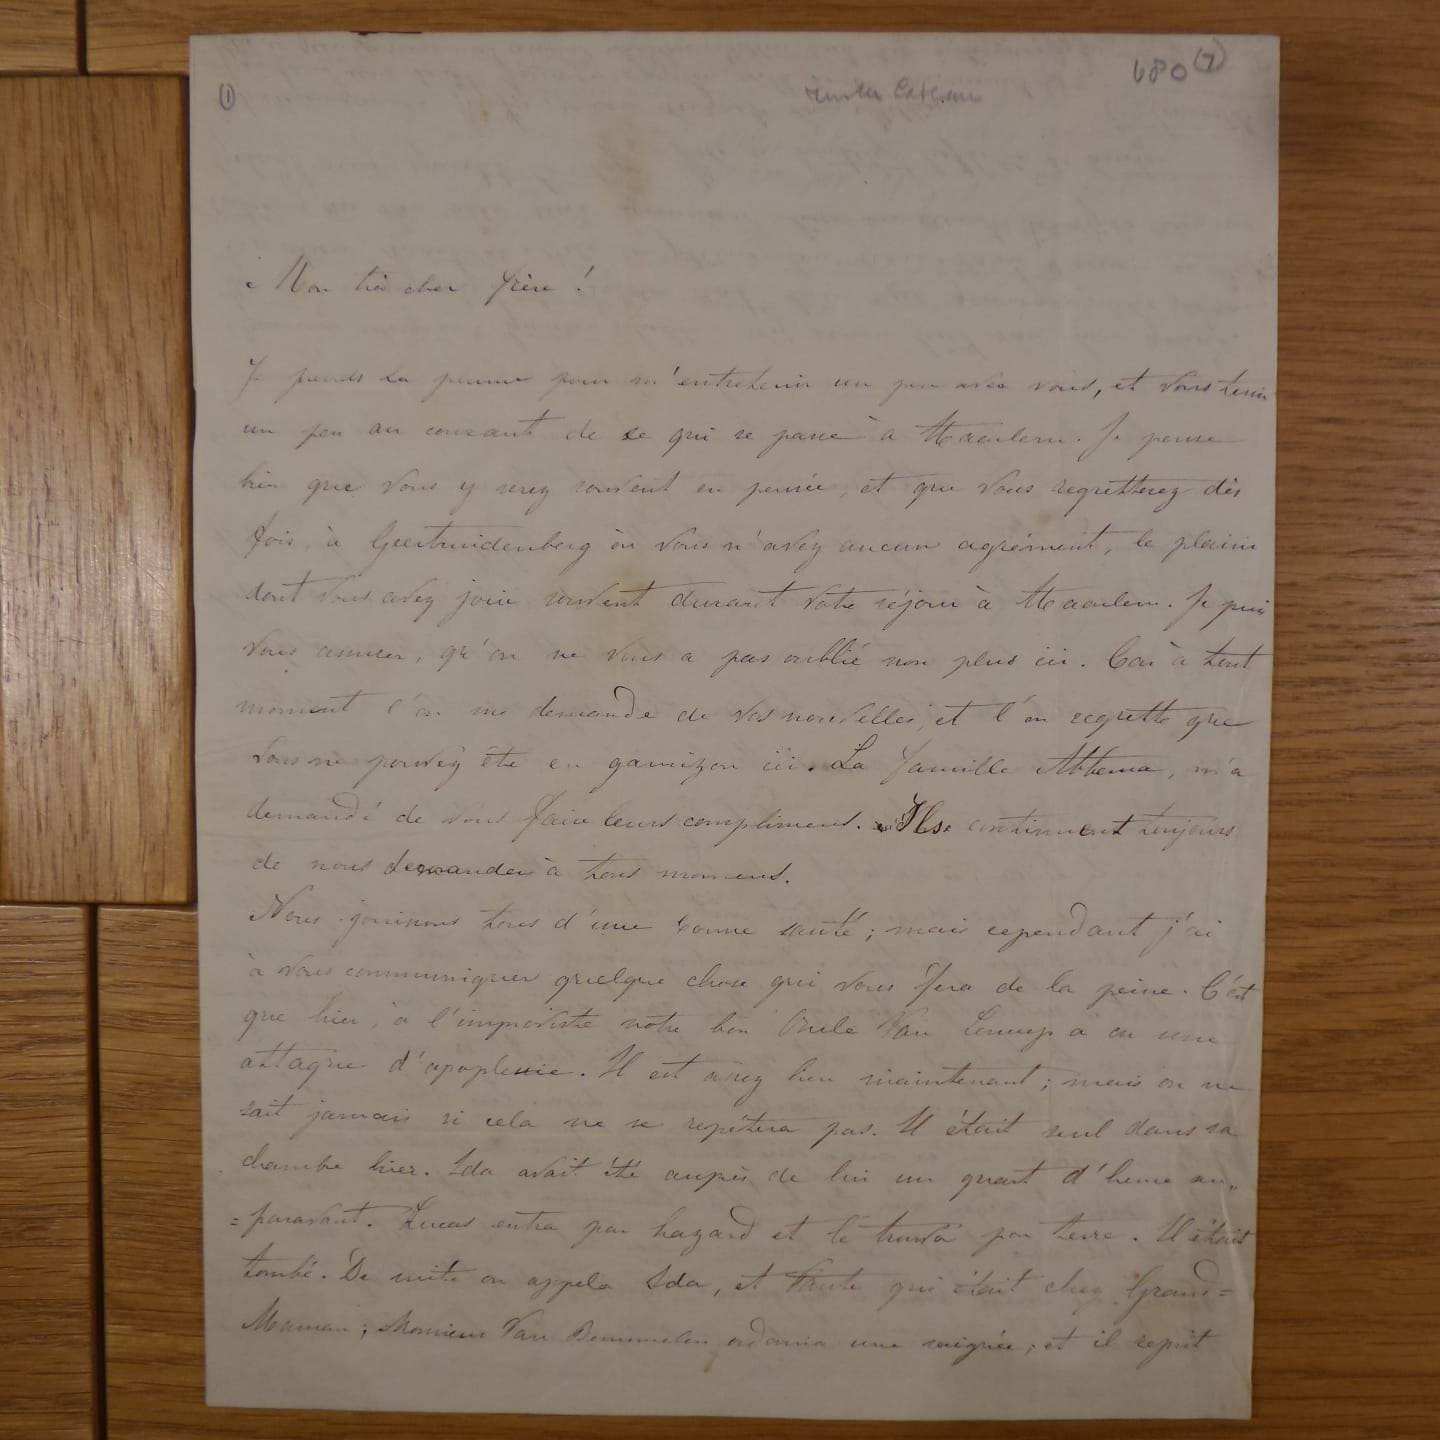 (1)
680 (7)
Mon très cher frère !
Je prends la plume pour m'entretenir un peu avec vous, et vous tenir
un peu au courant de ce qui se passe à Haarlem. Je pense
bien que vous y serez souvent en pensée, et que vous regretterez dès
fois, à Geertruidenberg où vous n'avez aucun agrément, le plaisir
dont vous avez joui souvent durant votre séjour à Haarlem. Je puis
vous assurer, qu'on ne vous a pas oublié non plus ici. Car à tout
moment l'on me demande de vos nouvelles, et l'on regrette que
vous ne pouvez être en garnizon ici. La famille Abbema, m'a
demandé de vous faire leurs complimens. Ils continuent toujours
de nous demander à tous momens.
Nous jouissons tous d'une bonne santé ; mais cependant j'ai
à vous communiquer quelque chose qui vous fera de la peine. C'est
que hier, à l'improviste notre bon Oncle Van Lennep a eu une
attaque d'apoplexie. Il est assez bien maintenant ; mais on ne
sait jamais si cela ne se repétera pas. Il était seul dans sa
chambre hier. Ida avait été auprès de lui un quart d'heure au„
=paravant. Lucas entra par hazard et le trouva par terre. Il était
tombé. De suite on appela Ida, et Tante qui était chez Grand=
Maman ; Monsieur Van Bemmelen ordonna une saignée ; et il reprit